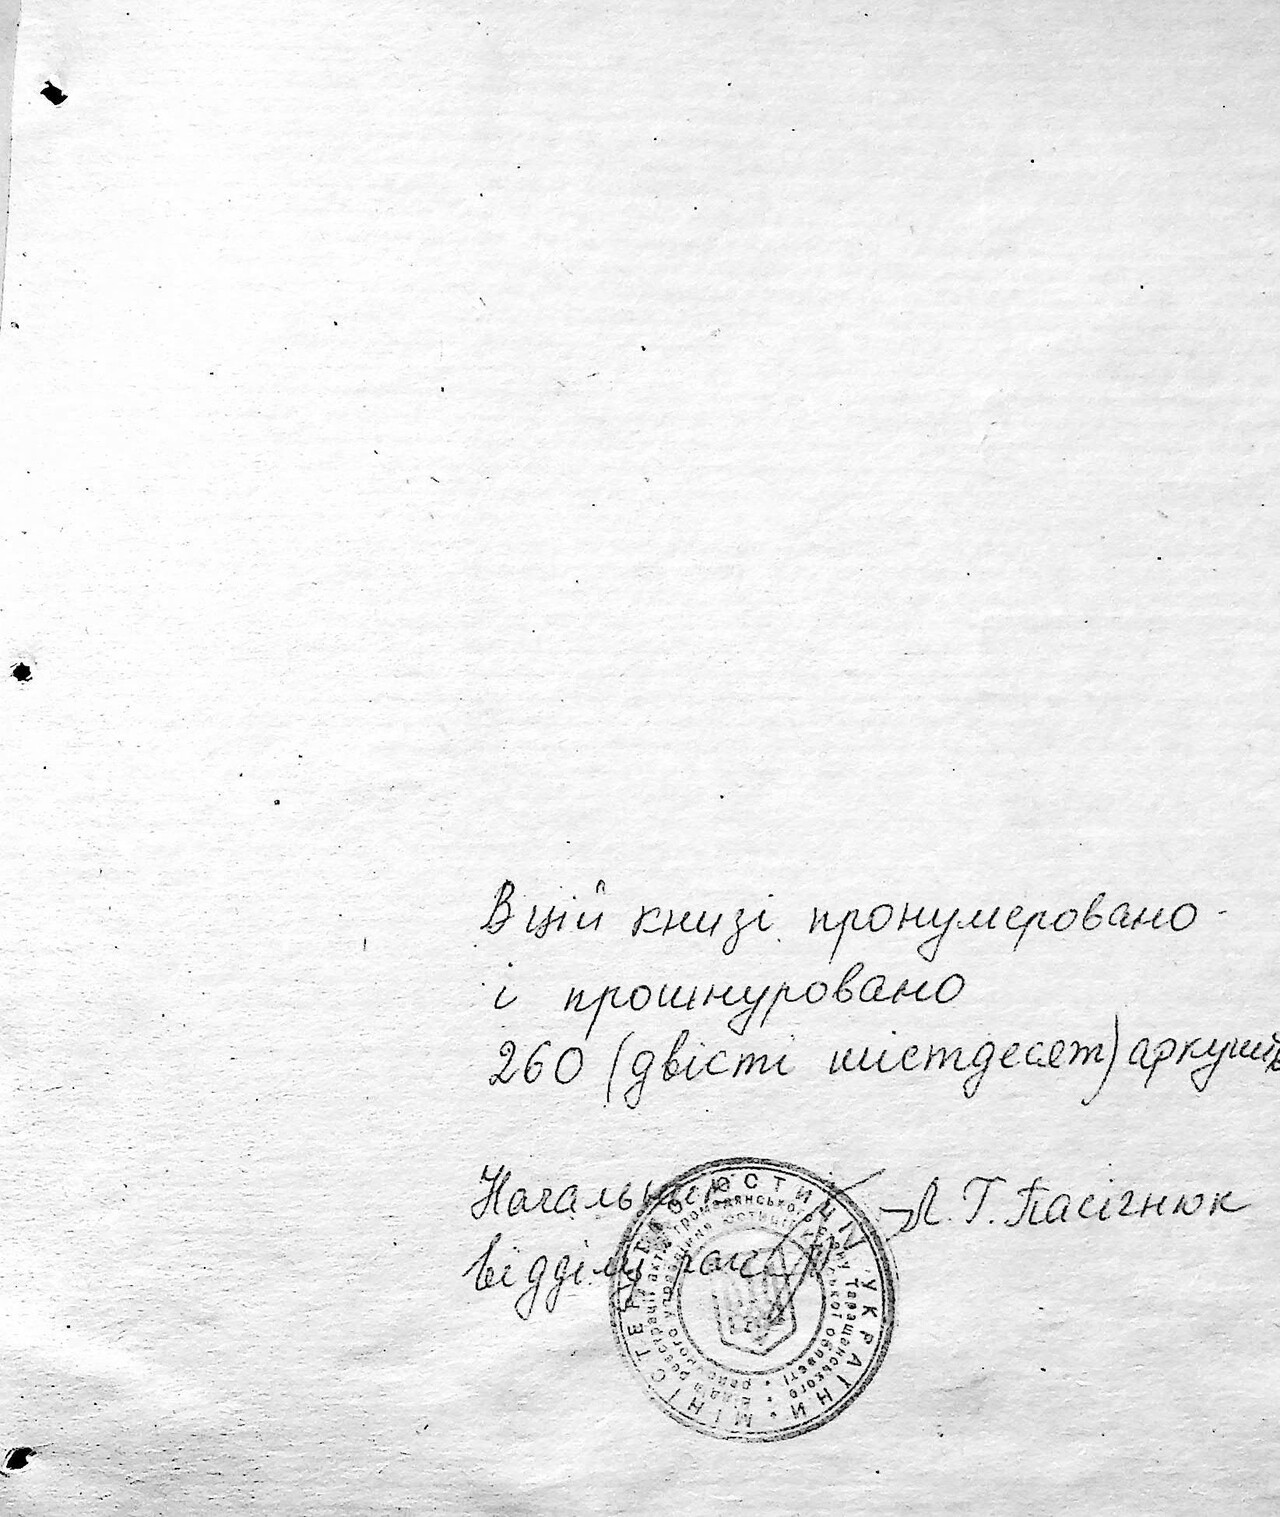 В цій книзі пронумеровано
і прошнуровано
260 (двісті шістдесят) аркушів
Начальник
відділу рацс
Л. Г. Пасігнюк
МІНІСТЕРСТВО ЮСТИЦІЇ УКРАЇНИ
Відділ реєстрації актів громадянського стану Таращанського
районного управління юстиції Київської області